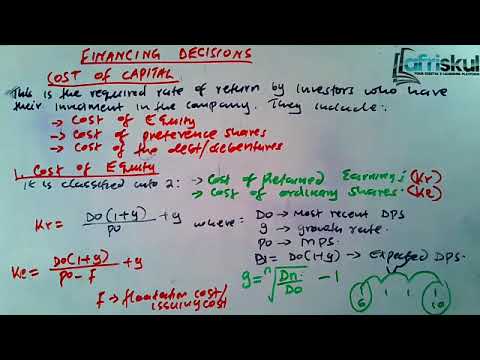 FINANCING DECISIONS
afriskul
YOUR DIGITAL E-LEARNING PLATFORM
COST OF CAPITAL
This is the required rate of return by investors who have
their investment in the company. They include:.
→ Cost of Equity
→ Cost of preference shares
→ Cost of the debt/debentures
1. COST OF EQUITY
it is classified into 2: → Cost of Retained Earnings (Kr)
→ Cost of ordinary shares. (Ke)
Kr = Do(1+g)/Po + g where: Do → Most recent DPS
g → growth rate.
Po → MPS.
D1 = Do(1+g) → Expected DPS.
Ke = Do(1+g)/Po - f + g
g = ⁿ√Dn/Do - 1
f → floatation cost/
issuing cost
6 10